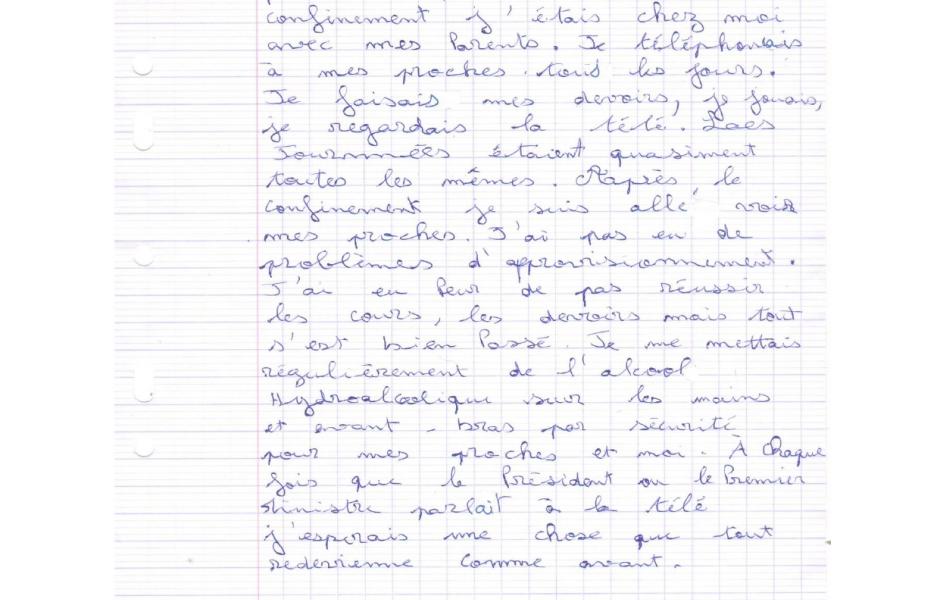 confinement j'étais chez moi
avec mes Parents. Je téléphonais
à mes proches tous les jours.
Je faisais mes devoirs, je jouais,
je regardais la télé. Les
Journnées étaient quasiment
toutes les mêmes. Après le
confinement je suis allé voir
mes proches. J'ai pas eu de
problèmes d'approvisionnement.
J'ai eu Peur de pas réussir
les cours, les devoirs mais tout
s'est bien Passé. Je me mettais
régulièrement de l'alcool
Hydroalcoolique sur les mains
et avant-bras par sécurité
pour mes proches et moi. À chaque
fois que le Président ou le Premier
Ministre parlait à la télé
j'esperais une chose que tout
redevienne comme avant.